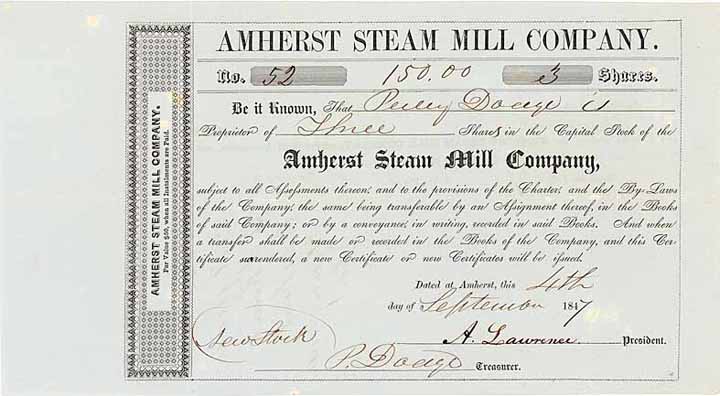 AMHERST STEAM MILL COMPANY.
Par Value $50, when all Instalments are Paid.
AMHERST STEAM MILL COMPANY.
No. 52 150.00 3 Shares.
Be it Known, That Perley Dodge is
Proprietor of Three Shares in the Capital Stock of the
Amherst Steam Mill Company,
subject to all Aſseſsments thereon; and to the provisions of the Charter; and the By-Laws
of the Company; the same being transferable by an Aſsignment thereof, in the Books
of said Company; or by a conveyance, in writing, recorded in said Books. And when
a transfer shall be made or recorded in the Books of the Company, and this Cer-
tificate surendered, a new Certificate or new Certificates will be iſsued.
Dated at Amherst, this 4th
day of September 1847
New Stock
A. Lawrence. President.
P. Dodge Treasurer.